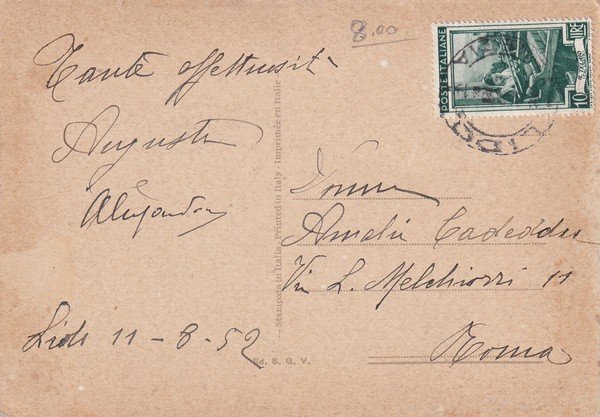 8.00
Tante affettuosità
Augusta
Alejandra
Lido 11-8-52
Stampato in Italia - Printed in Italy - Imprimée en Italie
Ed. S. G. V.
POSTE ITALIANE
10 LIRE
LIDO
Amelia Cadeddu
Via L. Melchiorri 11
Roma